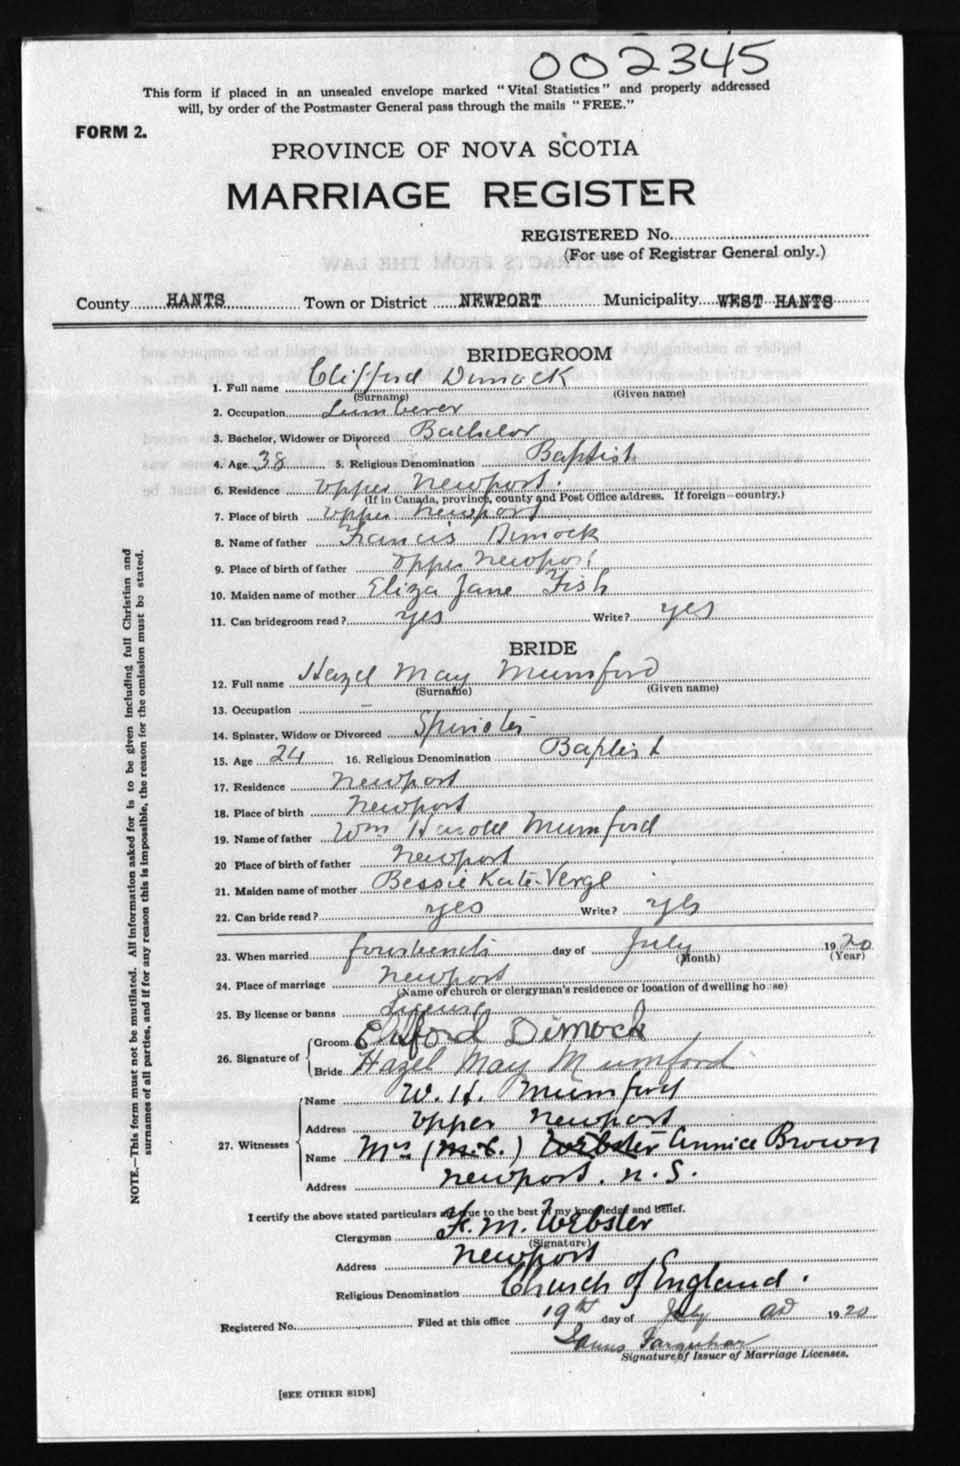 002345
This form if placed in an unsealed envelope marked "Vital Statistics" and properly addressed
will, by order of the Postmaster General pass through the mails "FREE."
FORM 2.
PROVINCE OF NOVA SCOTIA
MARRIAGE REGISTER
REGISTERED No.
(For use of Registrar General only.)
County HANTS Town or District NEWPORT Municipality WEST HANTS
BRIDEGROOM
1. Full name Clifford Dimock
(Surname) (Given name)
2. Occupation Lumberer
3. Bachelor, Widower or Divorced Bachelor
4. Age 38 5. Religious Denomination Baptist
6. Residence Upper Newport.
(If in Canada, province, county and Post Office address. If foreign—country.)
7. Place of birth Upper Newport
8. Name of father Francis Dimock
9. Place of birth of father Upper Newport
10. Maiden name of mother Eliza Jane Fish
11. Can bridegroom read? yes Write? yes
BRIDE
12. Full name Hazel May Mumford
(Surname) (Given name)
13. Occupation –
14. Spinster, Widow or Divorced Spinster
15. Age 24 16. Religious Denomination Baptist
17. Residence Newport
18. Place of birth Newport
19. Name of father Wm Harold Mumford
20 Place of birth of father Newport
21. Maiden name of mother Bessie Kate Verge
22. Can bride read? yes Write? yes
23. When married fourteenth day of July 1920
(Month) (Year)
24. Place of marriage Newport
(Name of church or clergyman's residence or location of dwelling house)
25. By license or banns License
26. Signature of Groom Clifford Dimock
Bride Hazel May Mumford
27. Witnesses Name W. H. Mumford
Address Upper Newport
Name Mrs (M.C.) Webster Annice Brown
Address Newport. N.S.
I certify the above stated particulars are true to the best of my knowledge and belief.
Clergyman F. M. Webster
(Signature)
Address Newport
Religious Denomination Church of England.
Registered No. Filed at this office 19th day of July AD 1920
Farquhar
Signature of Issuer of Marriage Licenses.
[SEE OTHER SIDE]
NOTE.—This form must not be mutilated. All information asked for is to be given including full Christian and
surnames of all parties, and if for any reason this is impossible, the reason for the omission must be stated.